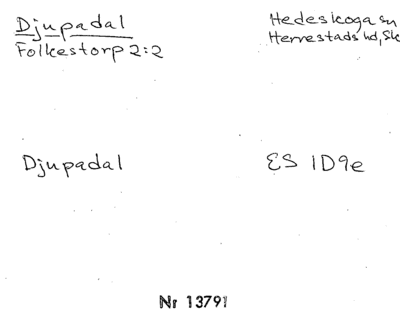 Djupadal
Hedeskoga sn
Folkestorp 2:2
Herrestads hd, Sk
Djupadal
ES 1D9e
Nr 13791